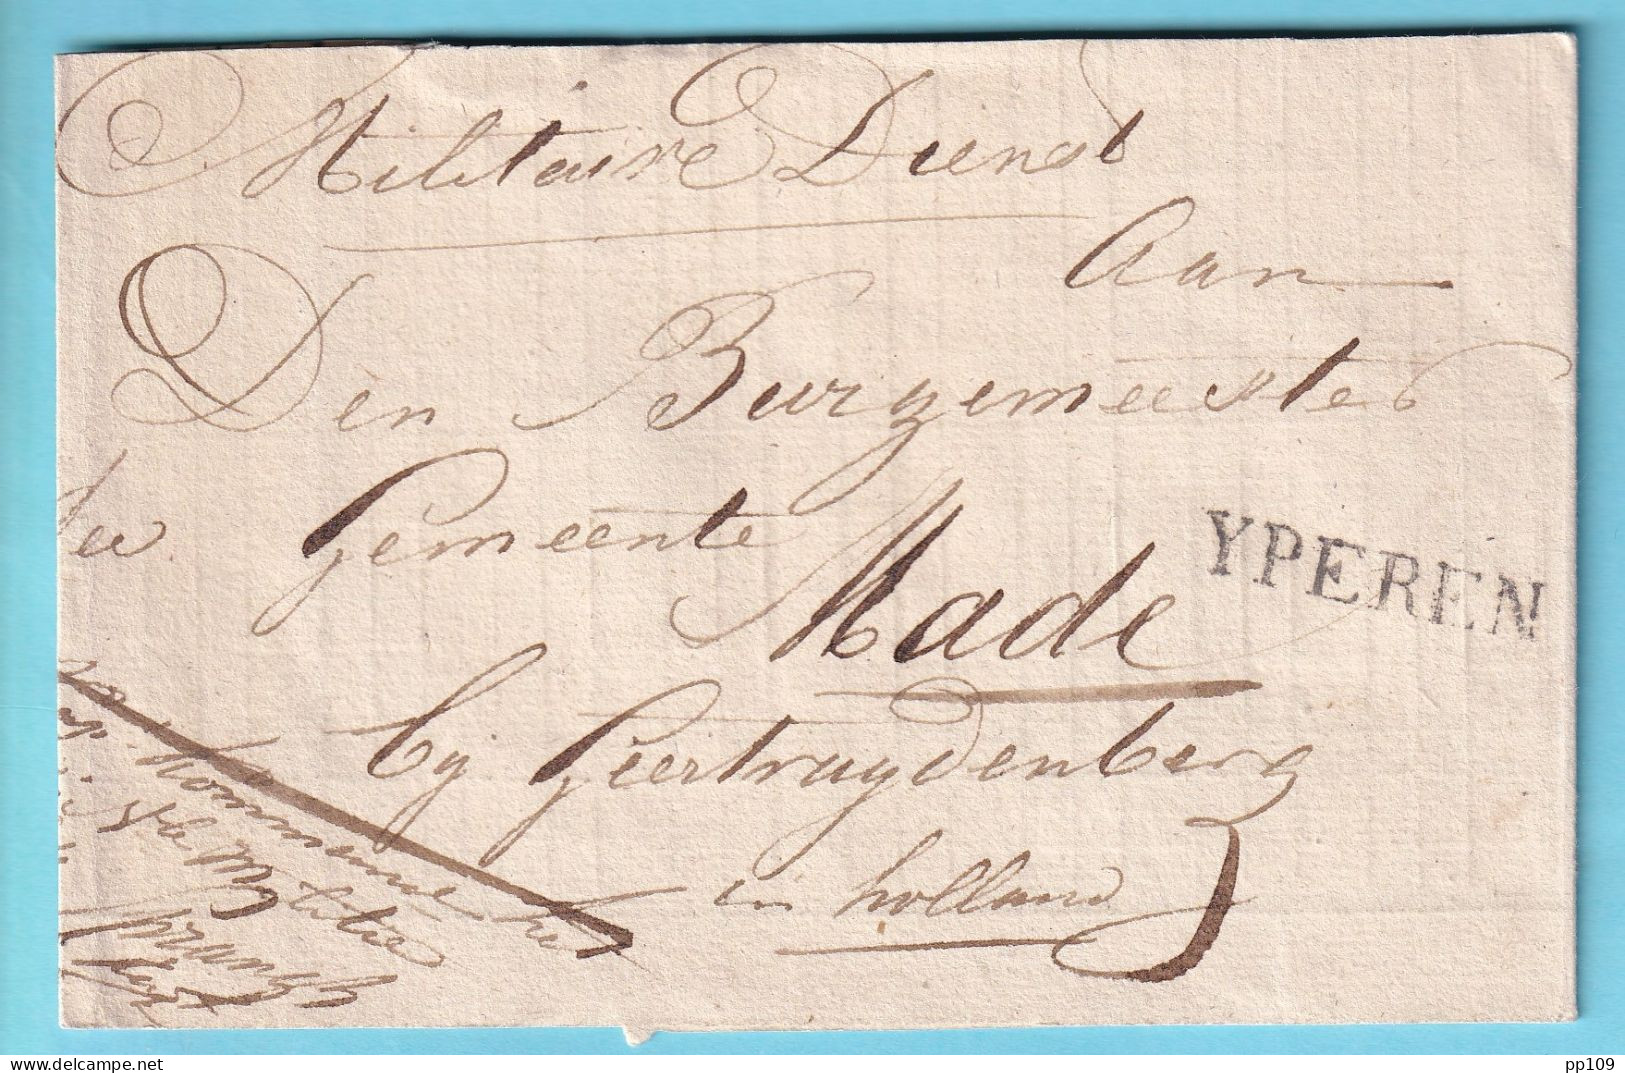 Militaire Dienst
Aan
Den Burgemeester
der Gemeente
Made
YPEREN
by Geertruydenberg
in holland
Kommend
Militie
delcampe.net
pp109